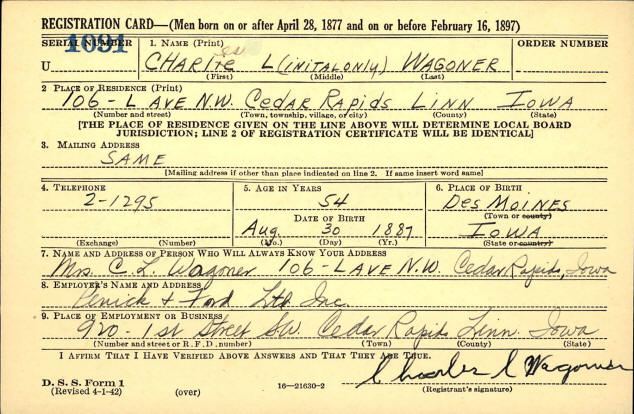 REGISTRATION CARD—(Men born on or after April 28, 1877 and on or before February 16, 1897)
SERIAL NUMBER 1. NAME (Print) ORDER NUMBER
1091
es
U CHARlie L (INITALONly) WAGONER
(First) (Middle) (Last)
2. PLACE OF RESIDENCE (Print)
106-L AVE N.W. CEDAR RAPIDS LINN IOWA
(Number and street) (Town, township, village, or city) (County) (State)
[THE PLACE OF RESIDENCE GIVEN ON THE LINE ABOVE WILL DETERMINE LOCAL BOARD
JURISDICTION; LINE 2 OF REGISTRATION CERTIFICATE WILL BE IDENTICAL]
3. MAILING ADDRESS
SAME
[Mailing address if other than place indicated on line 2. If same insert word same]
4. TELEPHONE 5. AGE IN YEARS 6. PLACE OF BIRTH
2-1295 54 DES MOINES
DATE OF BIRTH (Town or county)
Aug. 30 1887 IOWA
(Exchange) (Number) (Mo.) (Day) (Yr.) (State or country)
7. NAME AND ADDRESS OF PERSON WHO WILL ALWAYS KNOW YOUR ADDRESS
Mrs. C. L. Wagoner 106-L AVE N.W. Cedar Rapids, Iowa
8. EMPLOYER'S NAME AND ADDRESS
Penick & Ford Ltd Inc.
9. PLACE OF EMPLOYMENT OR BUSINESS
920-1st Street SW. Cedar Rapids Linn. Iowa
(Number and street or R. F. D. number) (Town) (County) (State)
I AFFIRM THAT I HAVE VERIFIED ABOVE ANSWERS AND THAT THEY ARE TRUE.
Charles L Wagoner
D. S. S. Form 1
(Revised 4-1-42) (over) 16—21630-2 (Registrant's signature)